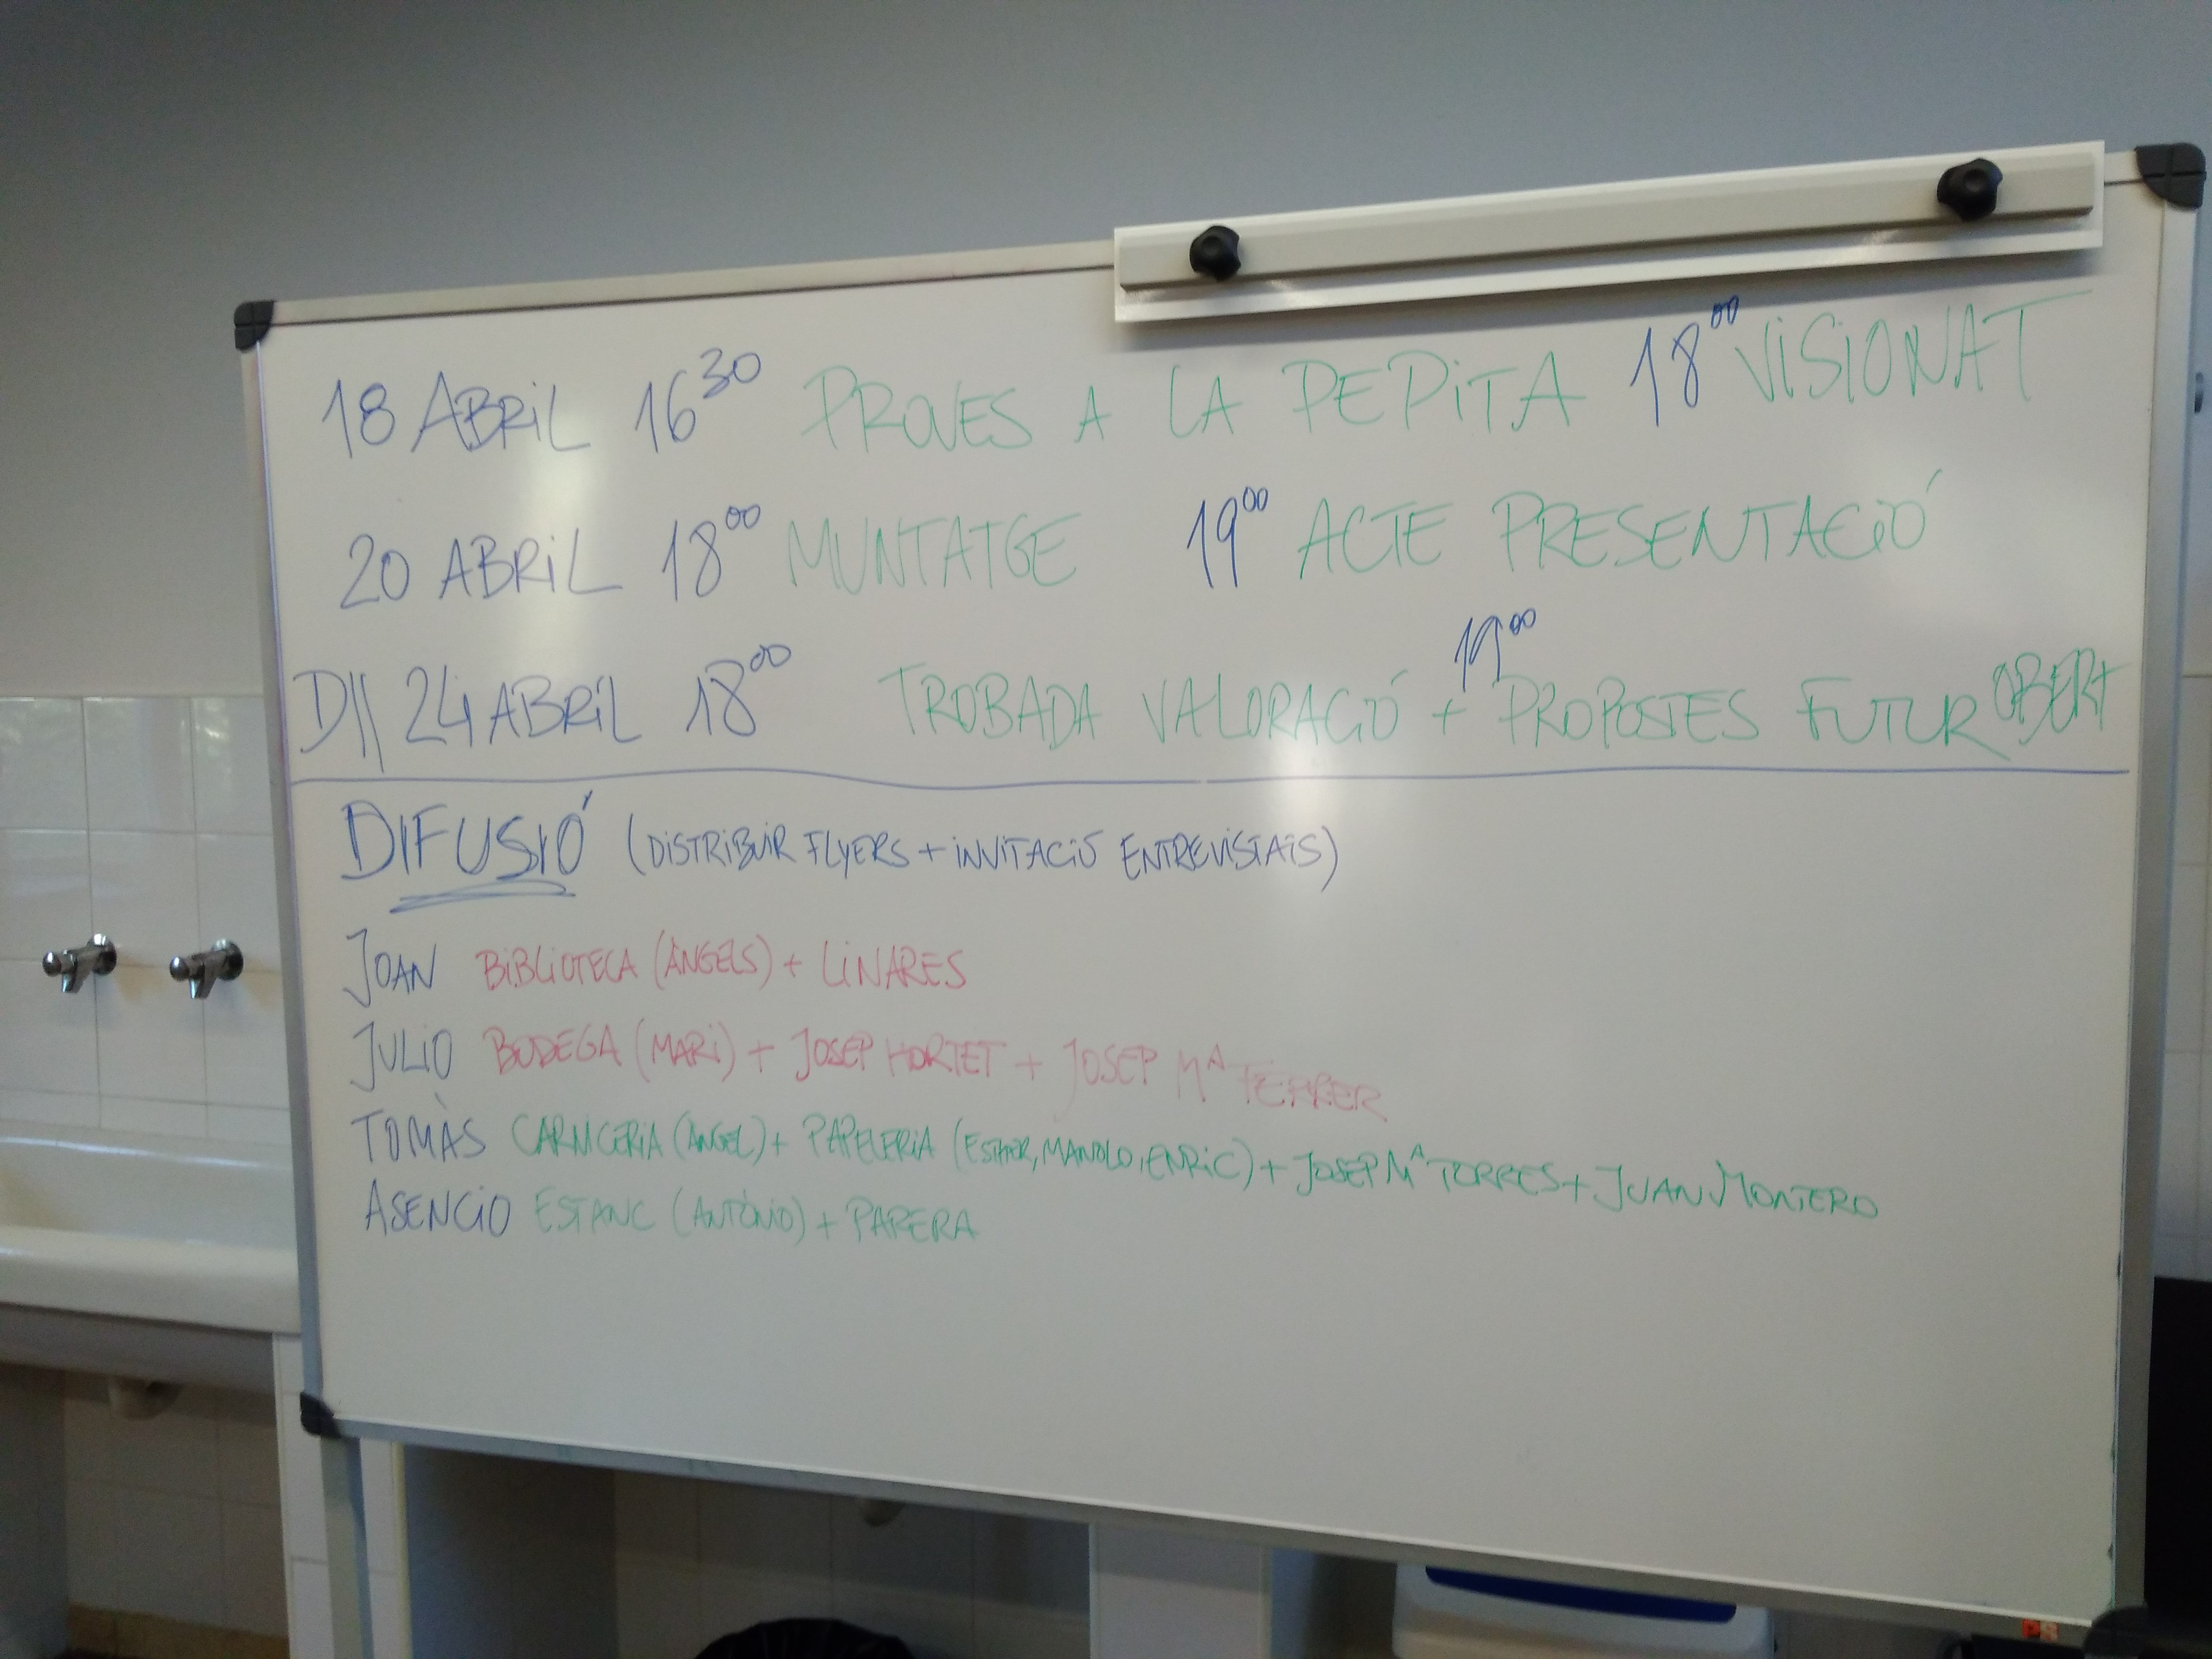 18 ABRIL 16³⁰ PROVES A LA PEPITA 18⁰⁰ VISIONAT
20 ABRIL 18⁰⁰ MUNTATGE 19⁰⁰ ACTE PRESENTACIÓ
Dll 24 ABRIL 18⁰⁰ TROBADA VALORACIÓ + 19⁰⁰ PROPOSTES FUTUR OBERT
DIFUSIÓ (DISTRIBUIR FLYERS + INVITACIÓ ENTREVISTAIS)
JOAN BIBLIOTECA (ÀNGELS) + LINARES
JULIO BODEGA (MARI) + JOSEP HORTET + JOSEP Mᴬ FERRER
TOMÀS CARNICERIA (ÀNGEL) + PAPELERIA (ESTHER, MANOLO, ENRIC) + JOSEP Mᴬ TORRES + JUAN MONTERO
ASENCIO ESTANC (ANTÒNIO) + PARERA